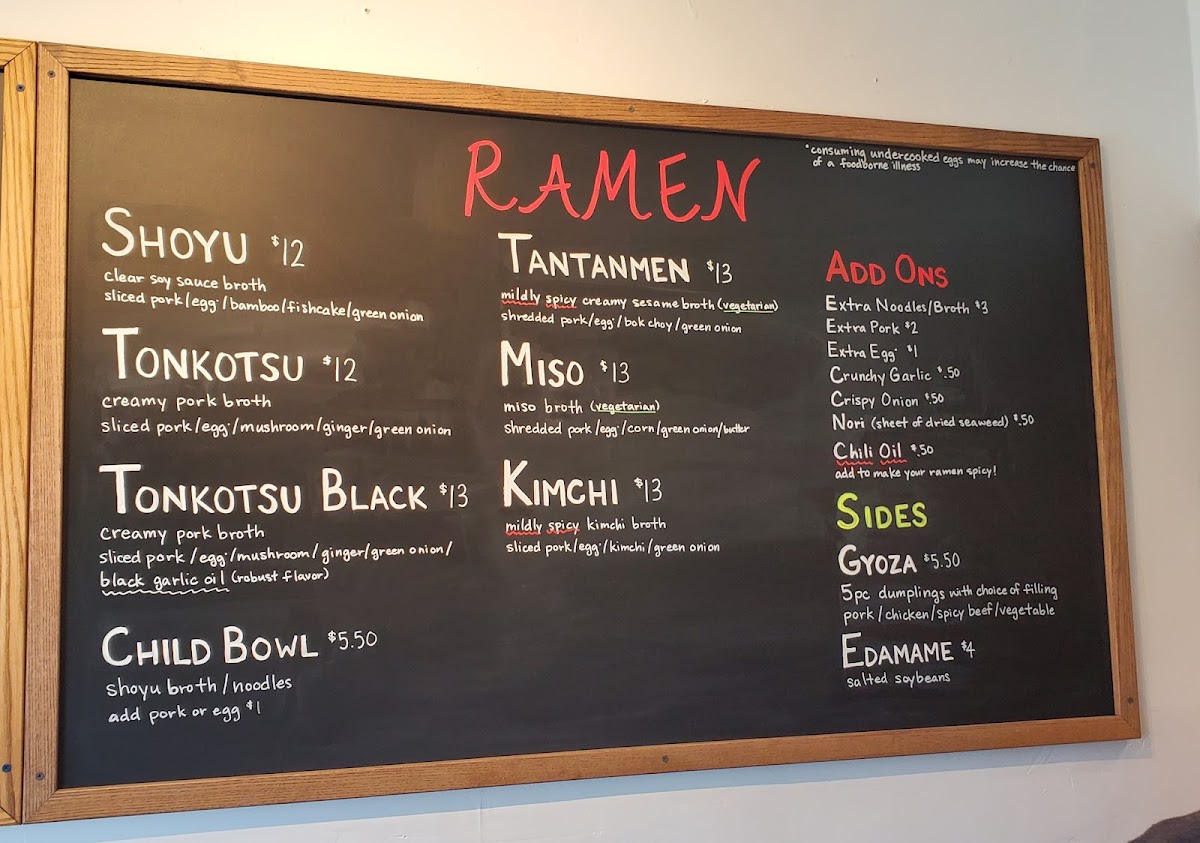 RAMEN
*consuming undercooked eggs may increase the chance
of a foodborne illness
SHOYU $12
clear soy sauce broth
sliced pork/egg*/bamboo/fishcake/green onion
TONKOTSU $12
creamy pork broth
sliced pork/egg*/mushroom/ginger/green onion
TONKOTSU BLACK $13
creamy pork broth
sliced pork/egg*/mushroom/ginger/green onion/
black garlic oil (robust flavor)
CHILD BOWL $5.50
shoyu broth/noodles
add pork or egg $1
TANTANMEN $13
mildly spicy creamy sesame broth (vegetarian)
shredded pork/egg*/bok choy/green onion
MISO $13
miso broth (vegetarian)
shredded pork/egg*/corn/green onion/butter
KIMCHI $13
mildly spicy kimchi broth
sliced pork/egg*/kimchi/green onion
ADD ONS
Extra Noodles/Broth $3
Extra Pork $2
Extra Egg* $1
Crunchy Garlic $.50
Crispy Onion $.50
Nori (sheet of dried seaweed) $.50
Chili Oil $.50
add to make your ramen spicy!
SIDES
GYOZA $5.50
5pc dumplings with choice of filling
pork/chicken/spicy beef/vegetable
EDAMAME $4
salted soybeans